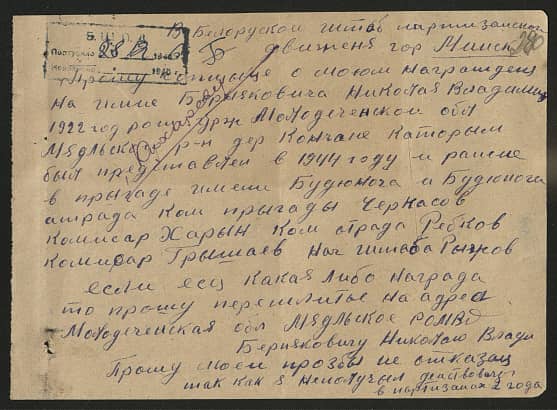 В Белоруской штаб партизанской
движеня гор Минск
Прошу отпыще о моюм награжден
на имие Берняковича Николая Владими
1922 год рож урж Молодеченской обл
Мядльска р-н дер Кончане каторым
был представлен в 1944 году и ранше
в прыгаде имени Будюноча и Будюнога
атрада ком прыгады Черкасов
комисар Харын ком отрада Ребков
комисар Грышаев нач штаба Рыжов
если есц какая либо награда
то прошу перешлитье на адрес
Молодеченская обл Мядльское РОМВД
Берняковичу Николаю Влади
Прошу моей прозбы не отказац
так как я неполучыл действовал
в партизанах 2 года